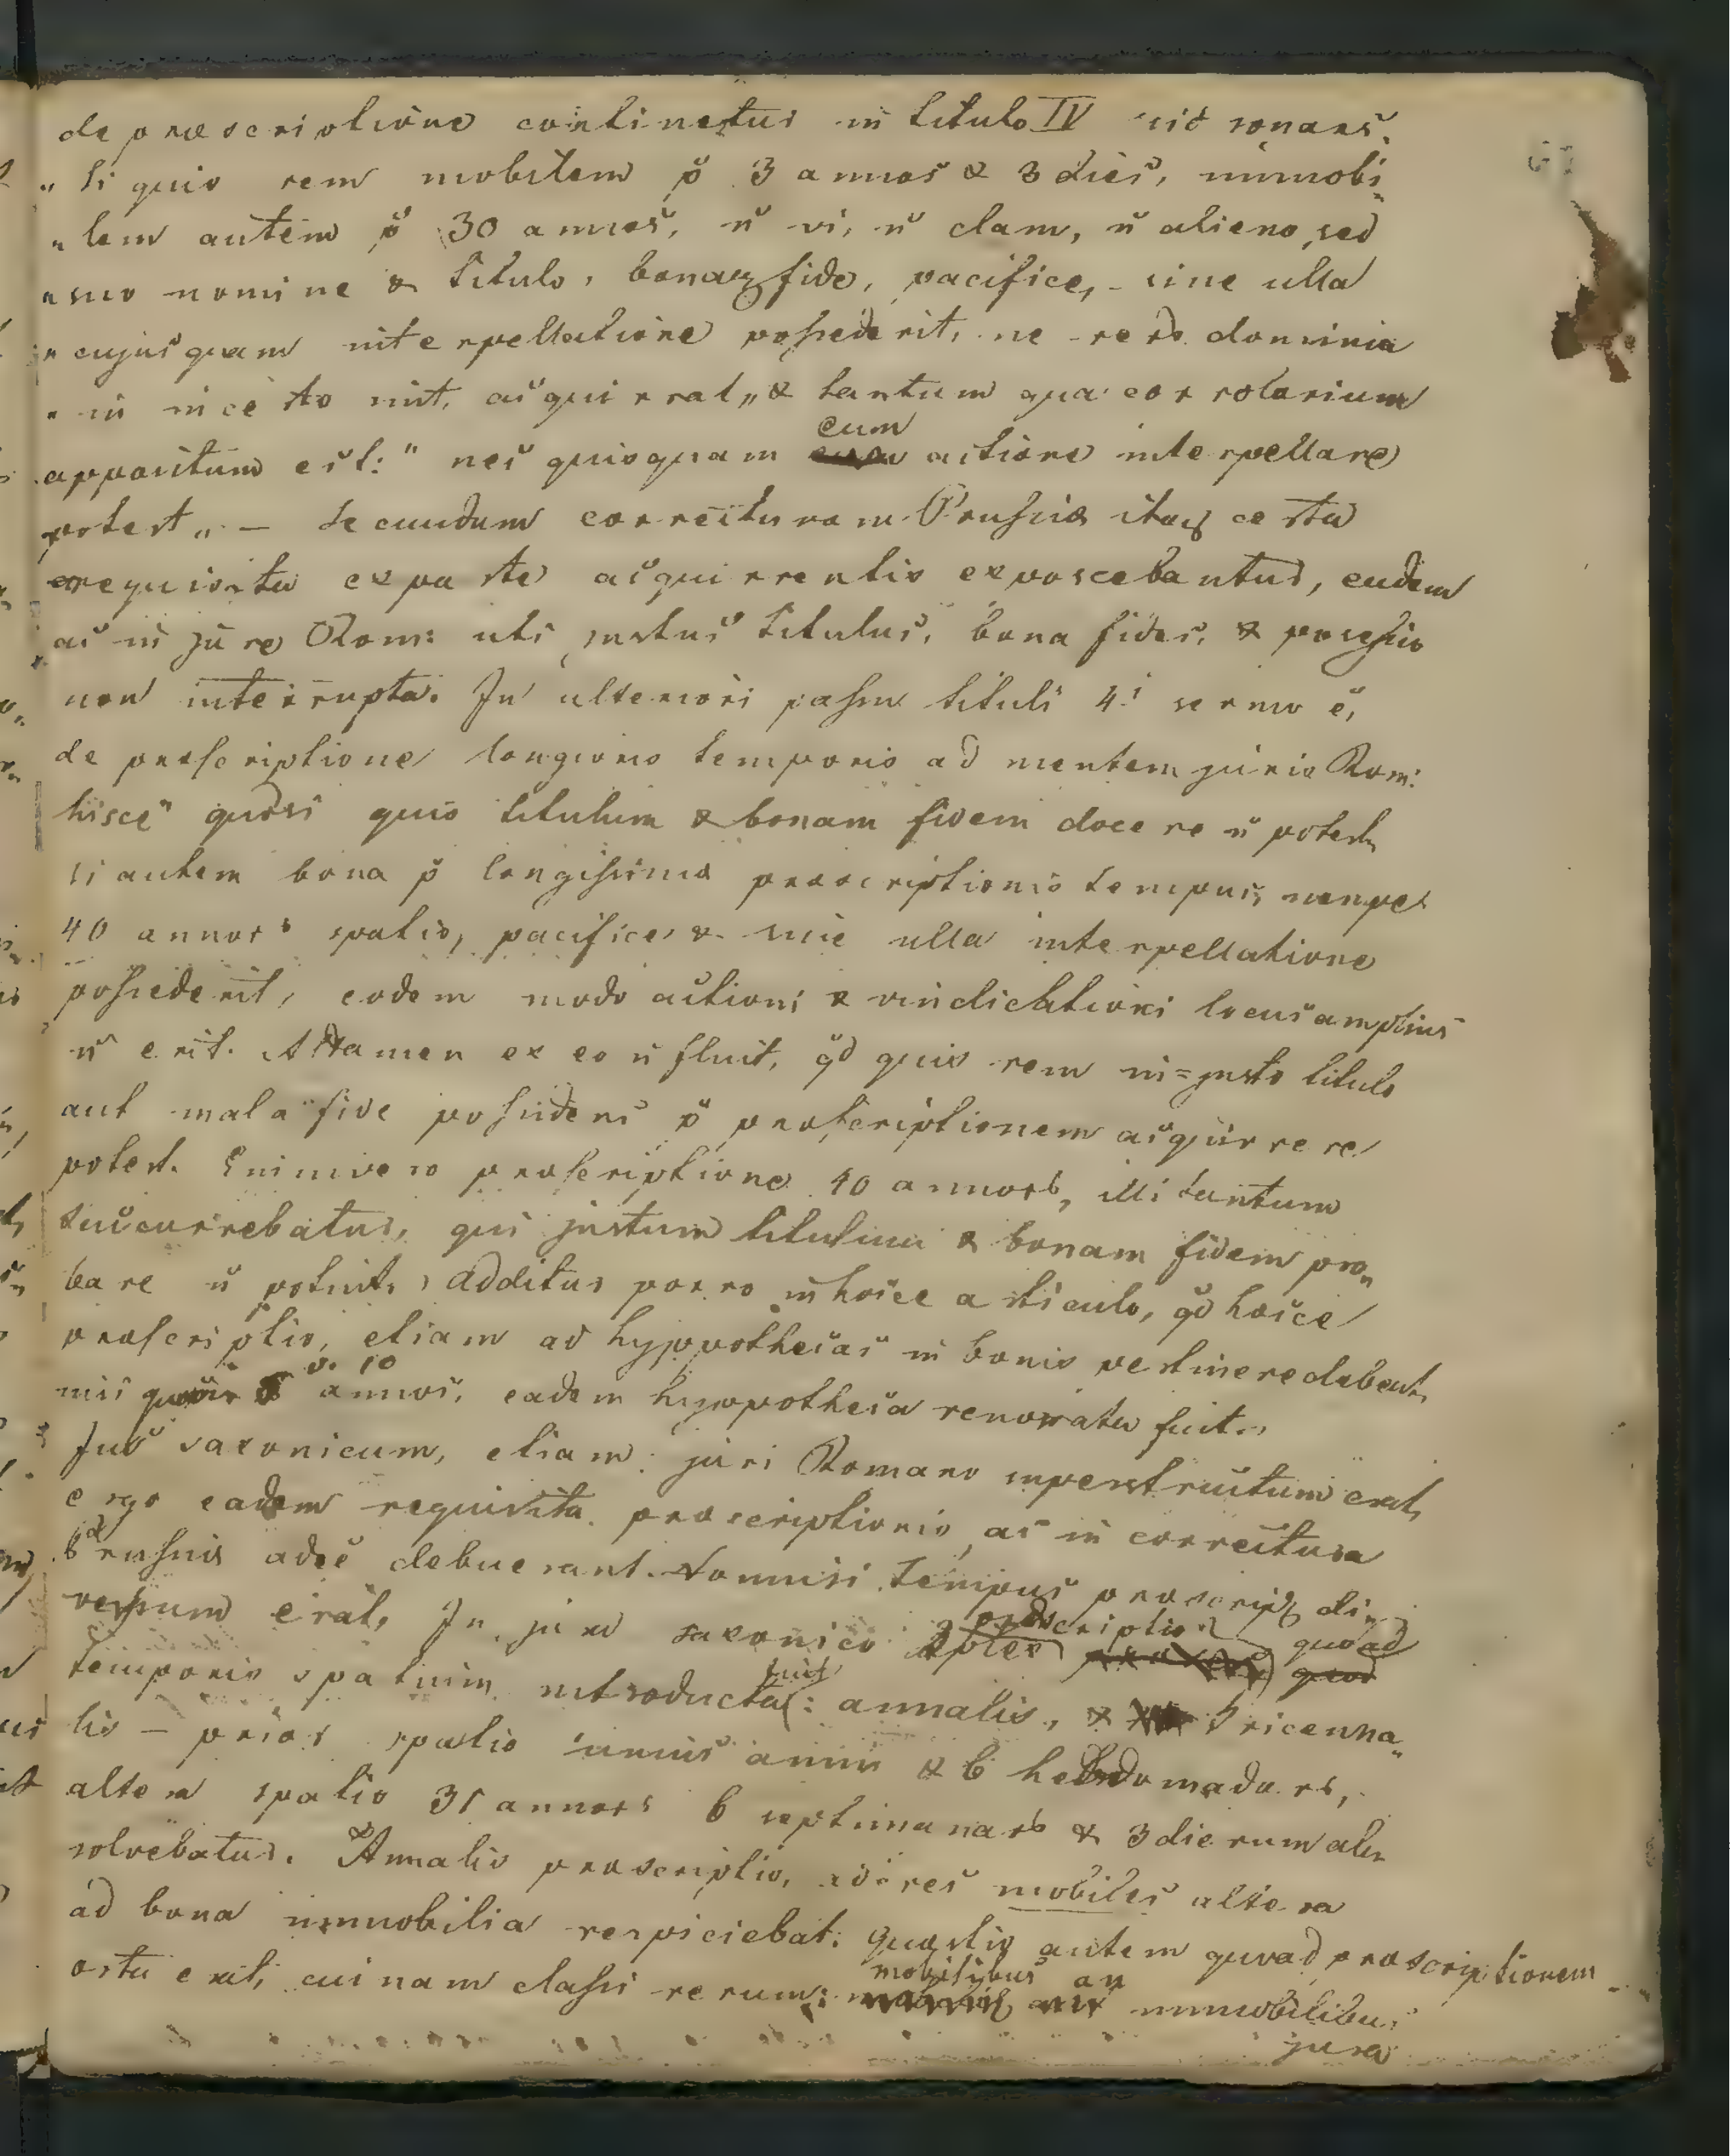 de præscriptione continetur in titulo IV sic sonans.
„ Si quis rem mobilem p̆ 3 annos & 3 dies, immobi„
„ lem autem p̆ 30 annos, n̆ vi, n̆ clam, n̆ alieno sed
„ suo nomine & titulo, bonaq fide, pacifice, sine ulla
„ cujusquam interpellatione possederit, ne rerd dominia
„ in incerto sint, acquirrat„ & tantum qua corrolarium
appositum est: " nec quisquam cum actione interpellare
potest „ — Secundum correcturam Prussiæ itaq certa
requisita ex parte acquirrentis exposcebantur, eadem
ac in jure Rom: uti justus titulus, bona fides, & possessio
non interrupta. In ulteriori passu tituli 4i sermo ĕ,
de præscriptione longioris temporis ad mentem juris Rom:
hisce" quodsi quis titulum & bonam fidem docere n̆ potest,
si autem bona p̆ longissimæ præscriptionis tempus, nempe
40 annorb spatio, pacifice & sine ulla interpellatione
possederit, eodem modo actioni & vindictationi locus amplius
n̆ erit. Attamen ex eo n̆ fluit, q̆d quis rem in=justo titulo
aut mala fide possidens p̆ præscriptionem acquirrere
potest. Enimvero præscriptione 40 annorb, illi tantum
succurrebatur, qui justum titulum & bonam fidem pro„
bare n̆ potuit, additur porro in hocce articulo, q̆d hocce
præscriptio, etiam ad hyppothecas in bonis pertinere debeat,
nisi quovis v. 10 annos, eadem hyppotheca renovata fuit.„
Jus saxonicum, etiam juri Romano superstructum erat,
ergo eadem requisita præscriptionis, ac in correctura
Prussiæ adeĕ debuerant. Nonnisi tempus præscripq di„
versum erat, In jure saxonico 2plex præscriptio quoad quod
temporis spatium introducta fuit: annalis, & tricenna„
lis — prior spatio unius anni & 6 hebdomadarb,
altera spatio 31 annorb 6 septimanarb & 3 dierum ab„
solvebatur. Annalis præscriptio, ad res mobiles altera
ad bona immobilia respiciebat. Quæstio autem quoad præscriptionem
orta erat, cuinam classi rerum: mobilibus an immobilibus
jura